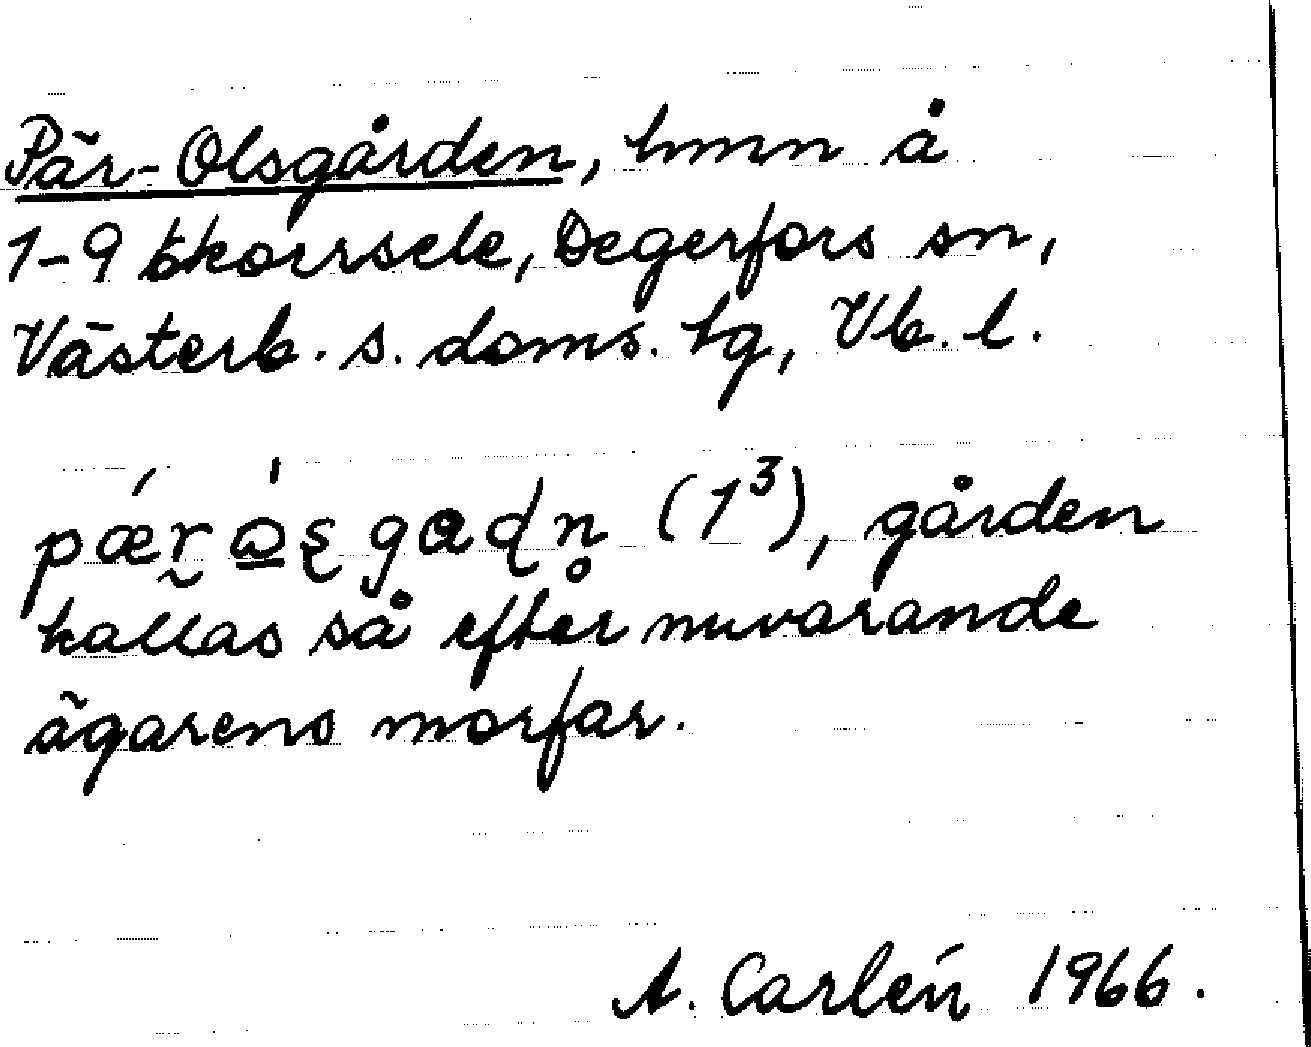 Pär-Olsgården, hmn å
1-9 Ekorrsele, Degerfors sn,
Västerb. s. doms. hg, Vb. l.
(1³), gården
kallas så efter nuvarande
ägarens morfar.
A. Carlén 1966.